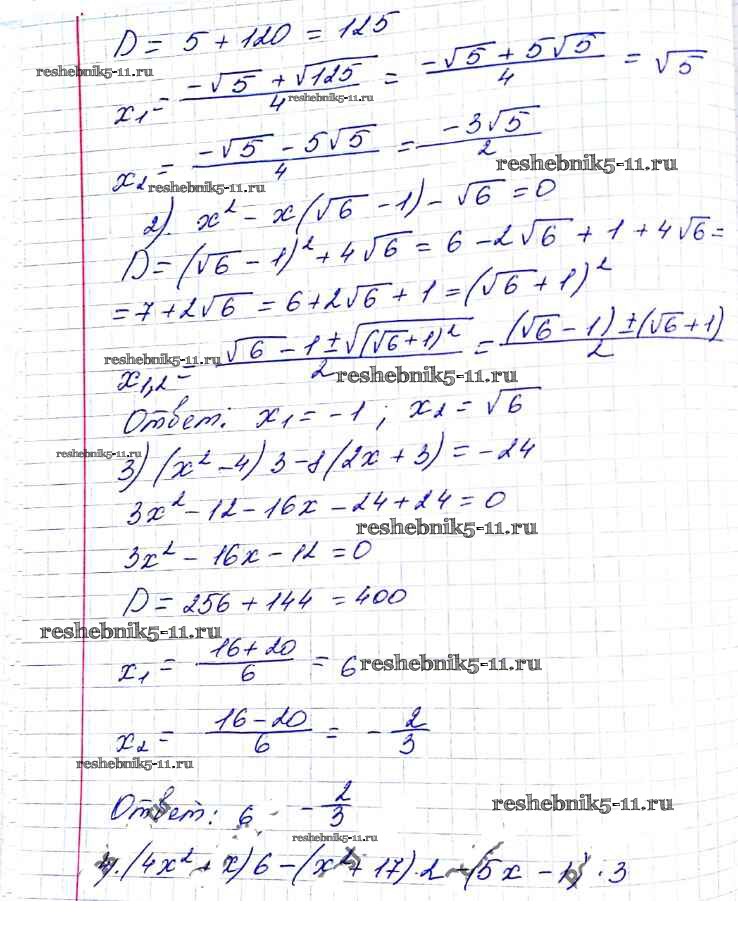 D = 5 + 120 = 125
reshebnik5-11.ru
x₁ = (-√5 + √125)/4 = (-√5 + 5√5)/4 = √5
reshebnik5-11.ru
x₂ = (-√5 - 5√5)/4 = (-3√5)/2
reshebnik5-11.ru
reshebnik5-11.ru
2). x² - x(√6 - 1) - √6 = 0
D = (√6 - 1)² + 4√6 = 6 - 2√6 + 1 + 4√6 =
= 7 + 2√6 = 6 + 2√6 + 1 = (√6 + 1)²
reshebnik5-11.ru
x₁,₂ = (√6 - 1 ± √(√6+1)²)/2 = ((√6 - 1) ± (√6 + 1))/2
reshebnik5-11.ru
Ответ: x₁ = -1 ; x₂ = √6
reshebnik5-11.ru
3) (x² - 4) 3 - 8 (2x + 3) = -24
3x² - 12 - 16x - 24 + 24 = 0
reshebnik5-11.ru
3x² - 16x - 12 = 0
D = 256 + 144 = 400
reshebnik5-11.ru
x₁ = (16 + 20)/6 = 6
reshebnik5-11.ru
x₂ = (16 - 20)/6 = - 2/3
reshebnik5-11.ru
Ответ: 6 - 2/3
reshebnik5-11.ru
reshebnik5-11.ru
(4x² + x) 6 - (x² + 17) · 2 - (5x - 1) · 3